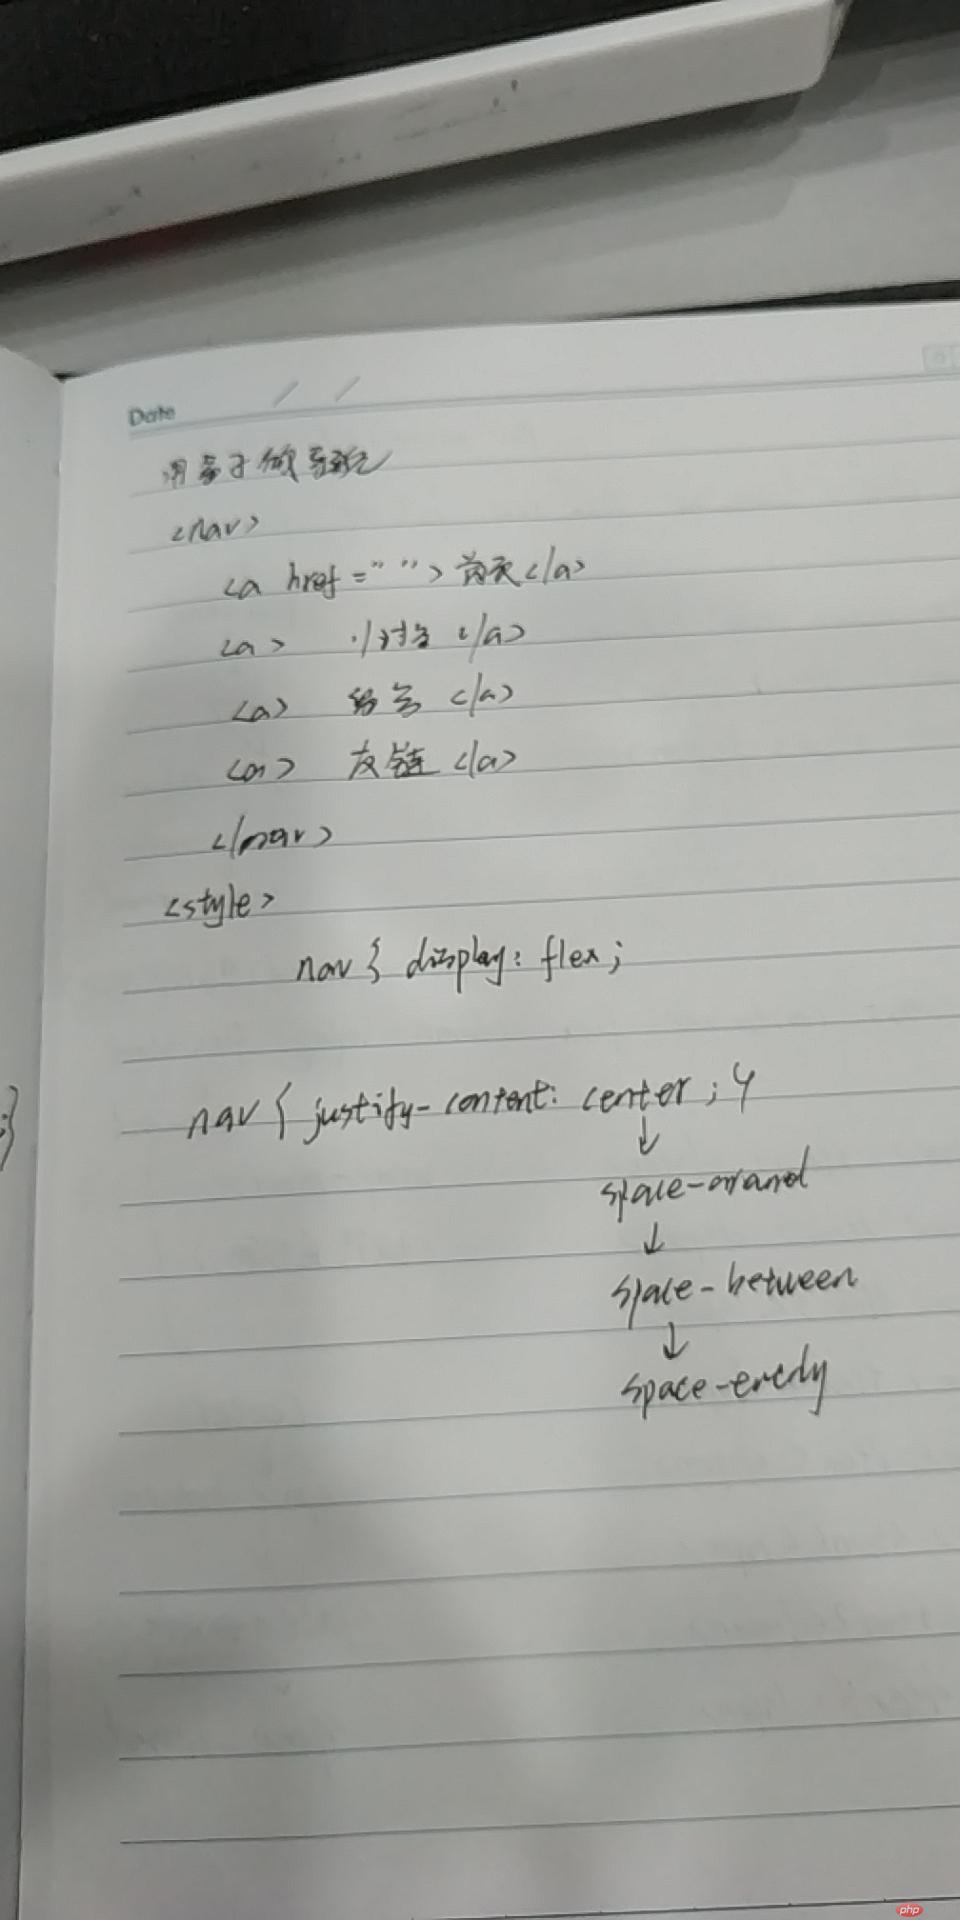 Date / /
用盒子做导航
<nav>
<a href=" ">首页</a>
<a> </a>
<a> </a>
<a> 友链 </a>
</nav>
<style>
nav { display: flex;
nav { justify-content: center; }
↓
space-around
↓
space-between
↓
space-evenly
php